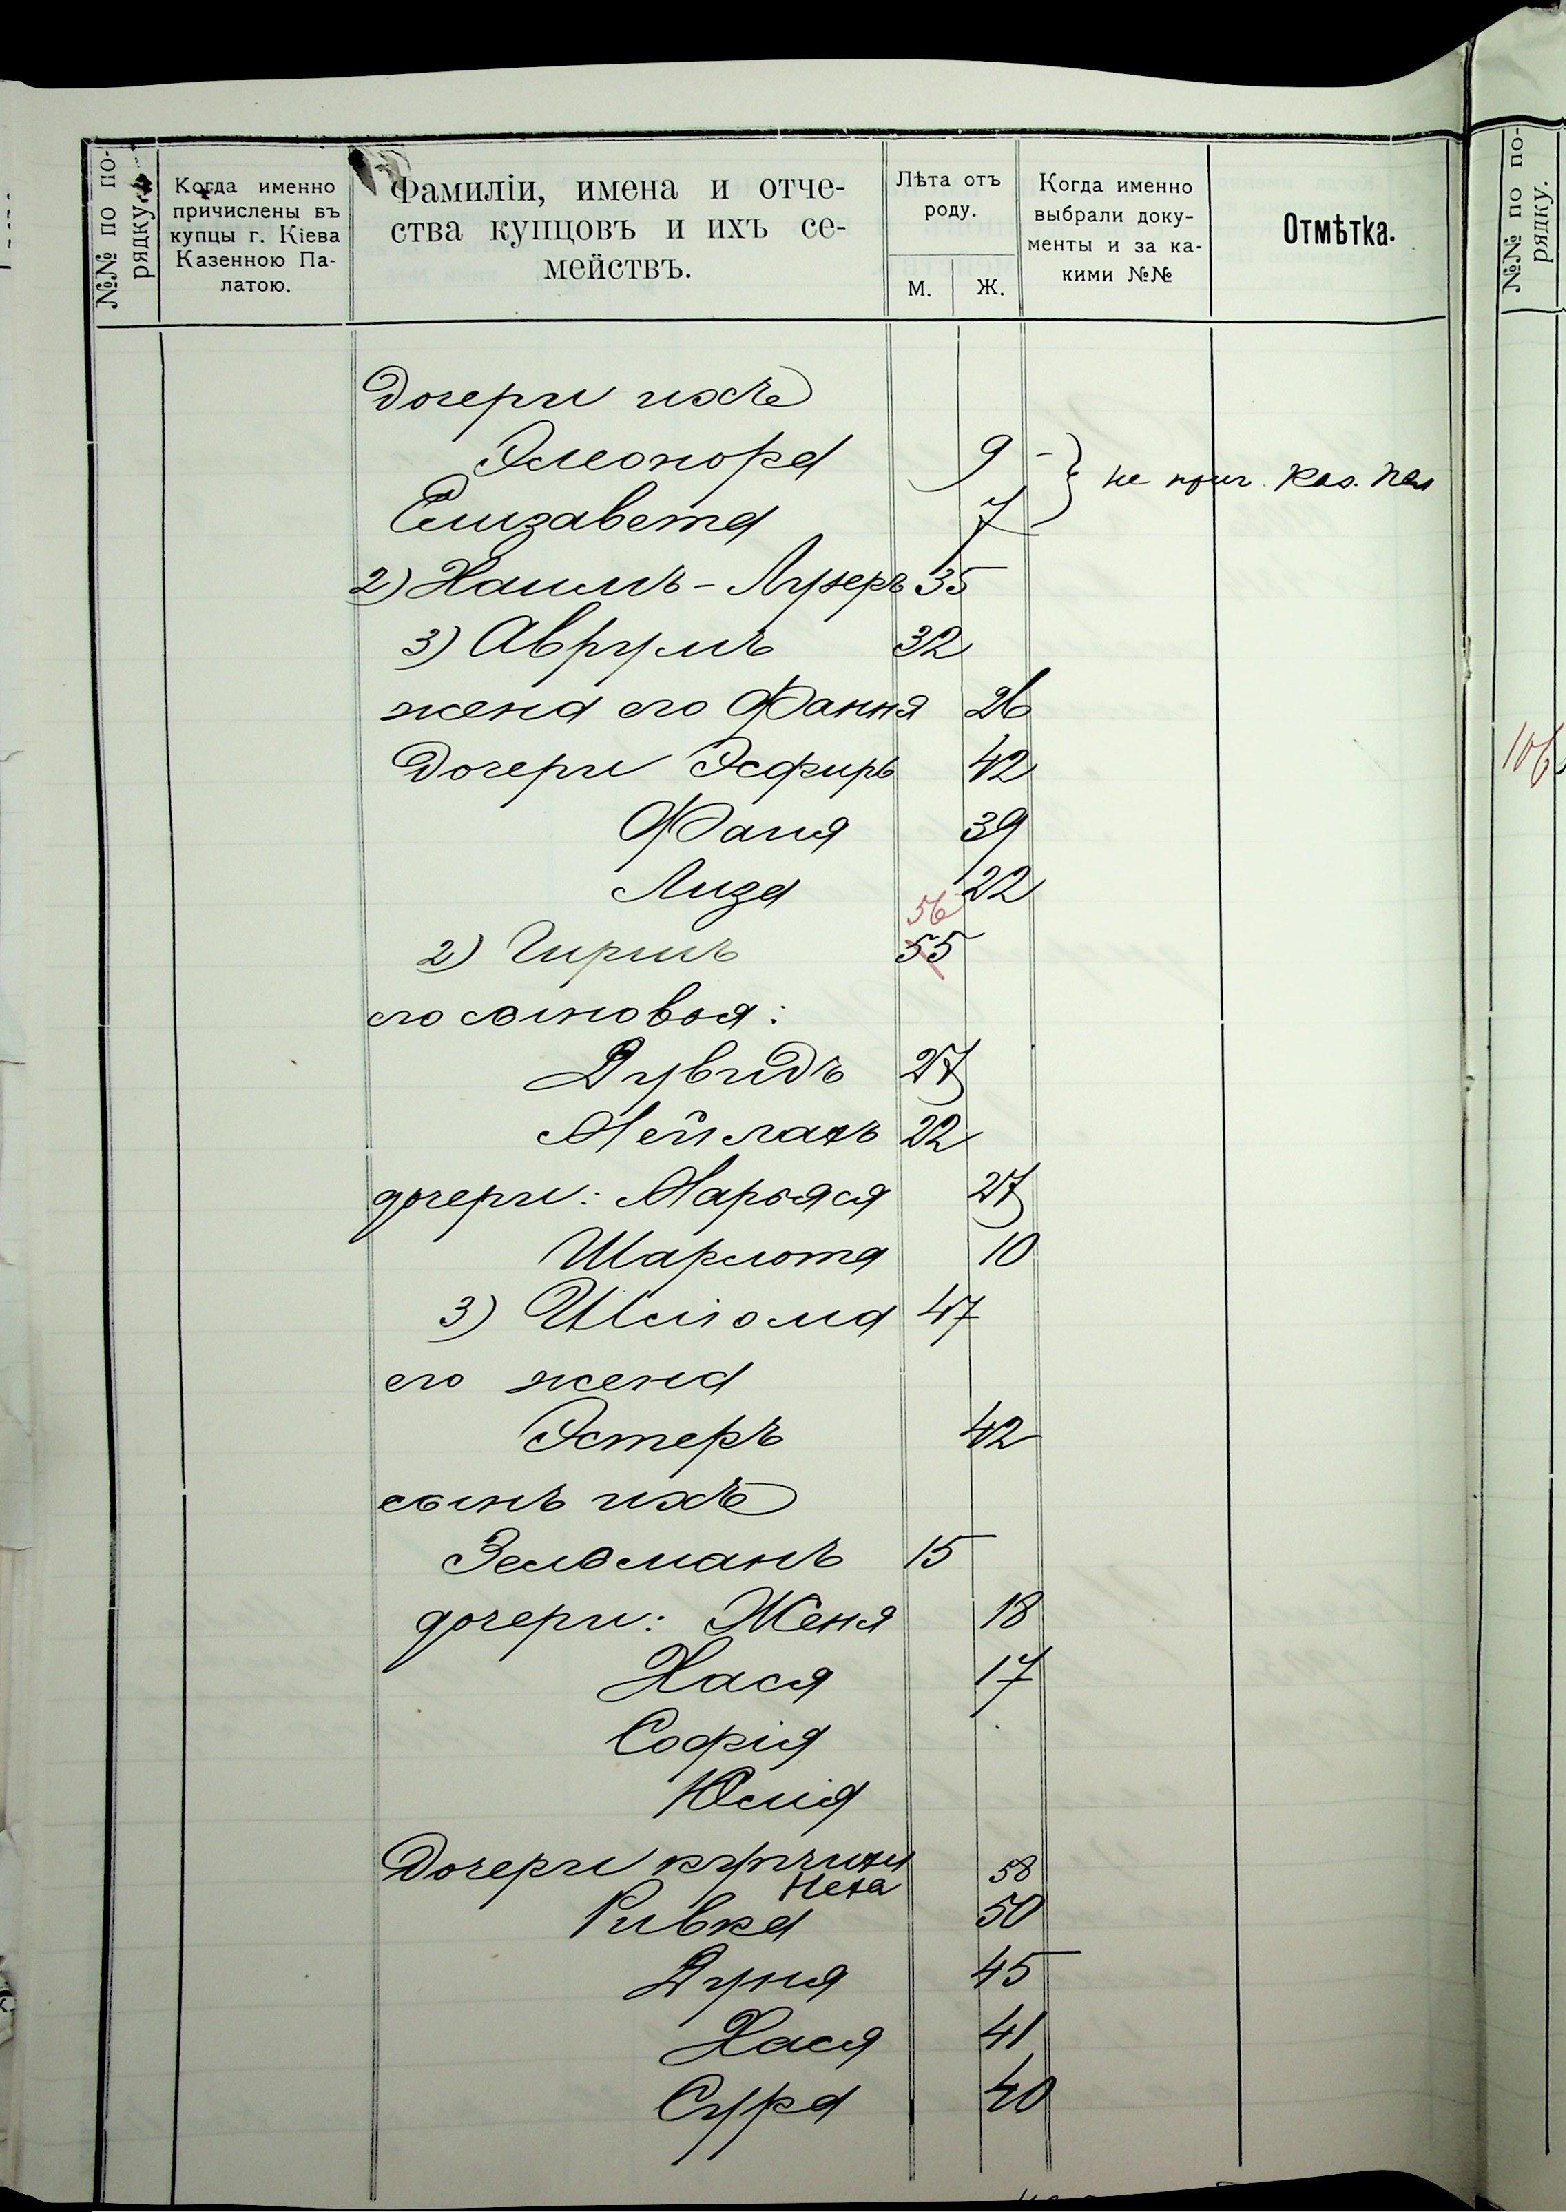 №№ по по-
рядку.
Когда именно
причислены въ
купцы г. Кіева
Казенною Па-
латою.
Фамиліи, имена и отче-
ства купцовъ и ихъ се-
мействъ.
Лѣта отъ
роду.
М.
Ж.
Когда именно
выбрали доку-
менты и за ка-
кими №№
Отмѣтка.
дочери ихъ
Элеонора 9
Елизавета 7
не прич. Каз. Пал
2) Хаимъ-Лузеръ 35
3) Аврумъ 32
жена его Фання 26
Дочери Эсфирь 42
Фаня 39
Лиза 22
56
2) Гиршъ 55
его сыновья:
Дувидъ 27
Мейлахъ 22
дочери: Марьяся 27
Шарлота 10
3) Шліома 47
его жена
Эстеръ 42
сынъ ихъ
Зельманъ 15
дочери: Женя 18
Хася 17
Софія
Юлія
Дочери купчихи
Неха 58
Ривка 50
Дуня 45
Хася 41
Сура 40
№№ по по-
рядку.
106